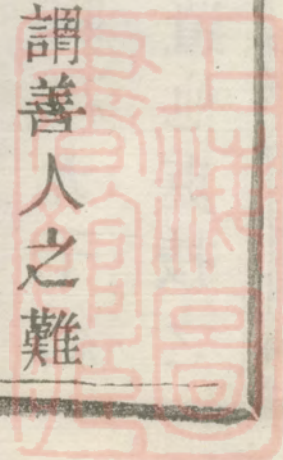 謂善人之難